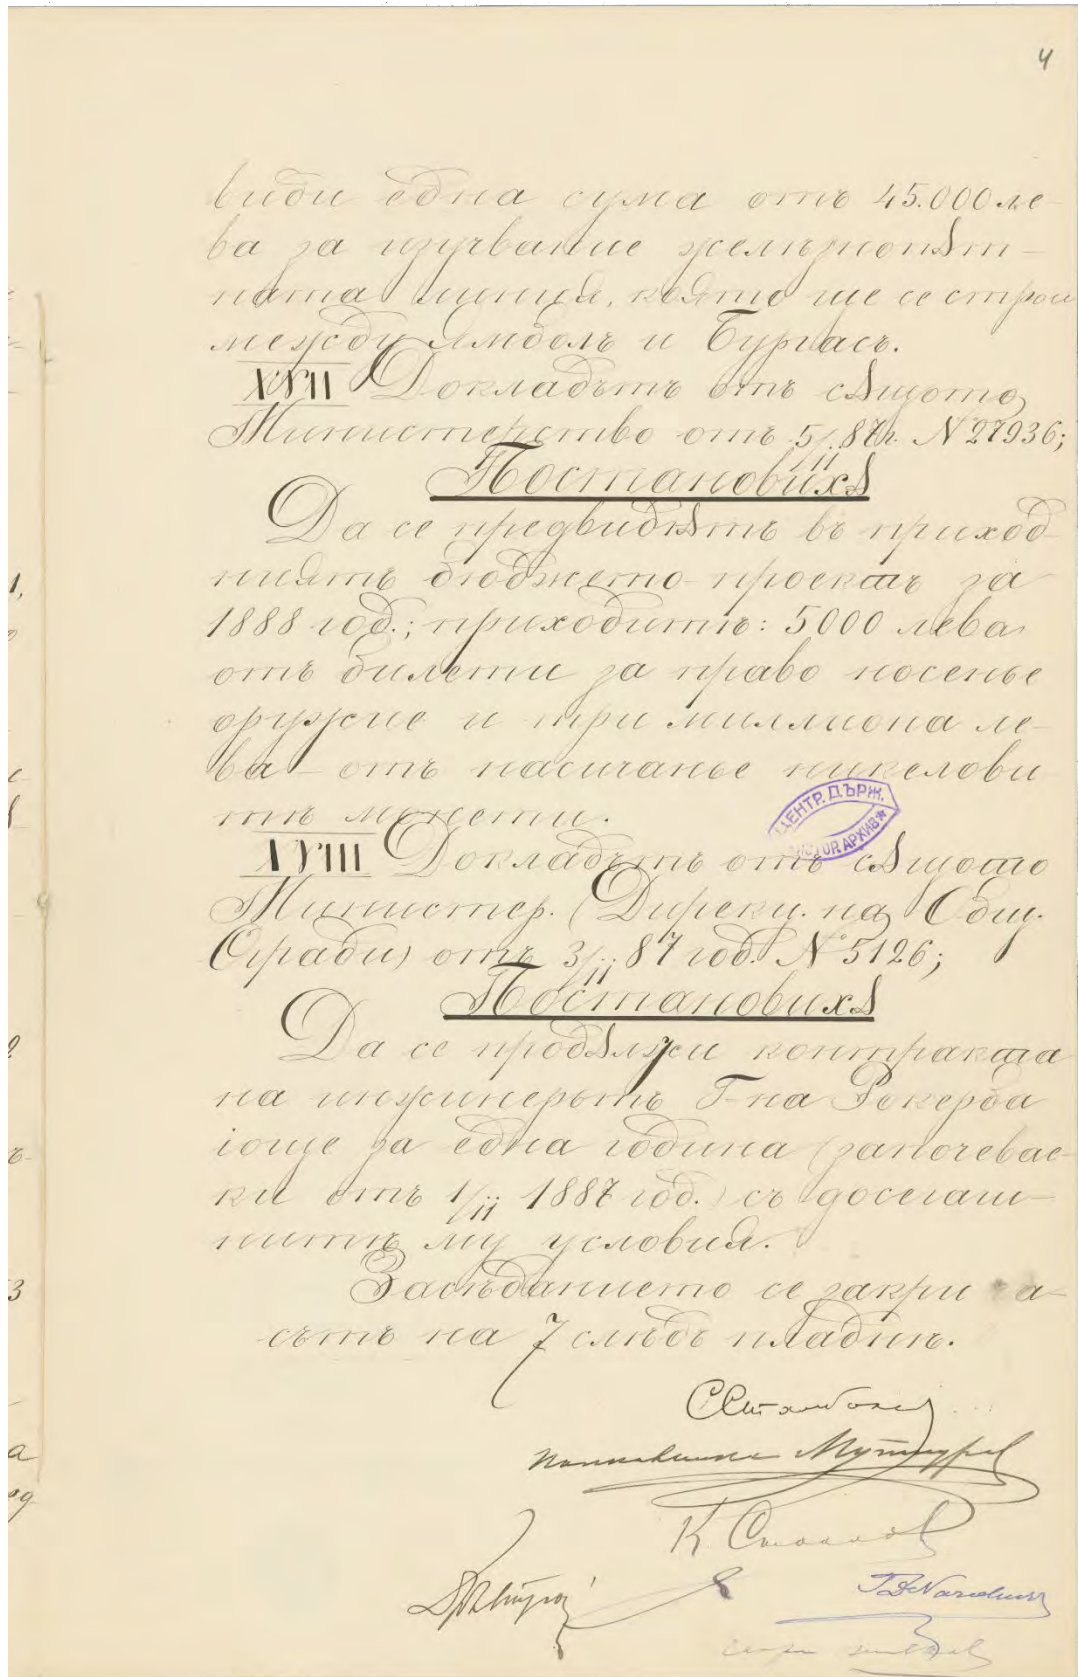 4
види една сума отъ 45.000 ле-
ва за изучвание желѣзнопѫт-
ната линия, която ще се строи
между Ямболъ и Бургасъ.
XVII Докладътъ отъ сѫщото
Министерство отъ 5/11 87 г. № 27936;
Постановихѫ
Да се предвидѭтъ въ приход-
ниятъ бюджето-проектъ за
1888 год.; приходитѣ: 5000 лева
отъ билети за право носенье
орѫжие и три миллиона ле-
ва - отъ насичанье никелови-
тѣ монети.
ЦЕНТР. ДЪРЖ.
ИСТОР. АРХИВ *
XVIII Докладътъ отъ сѫщото
Министер. (Дирекц. на Общ.
Сгради) отъ 3/11 87 год. № 5126;
Постановихѫ
Да се продѫлжи контракта
на инжинерътъ Г-на Рокерба
іоще за една година (започевае-
ки отъ 1/11 1887 год.) съ досегаш-
нитѣ му условия.
Засѣданието се закри ча-
сътъ на 7 слѣдъ пладнѣ.
Ст. Стамболов
подполковникъ Муткуровъ
К Стоилов
Г. Д. Начович